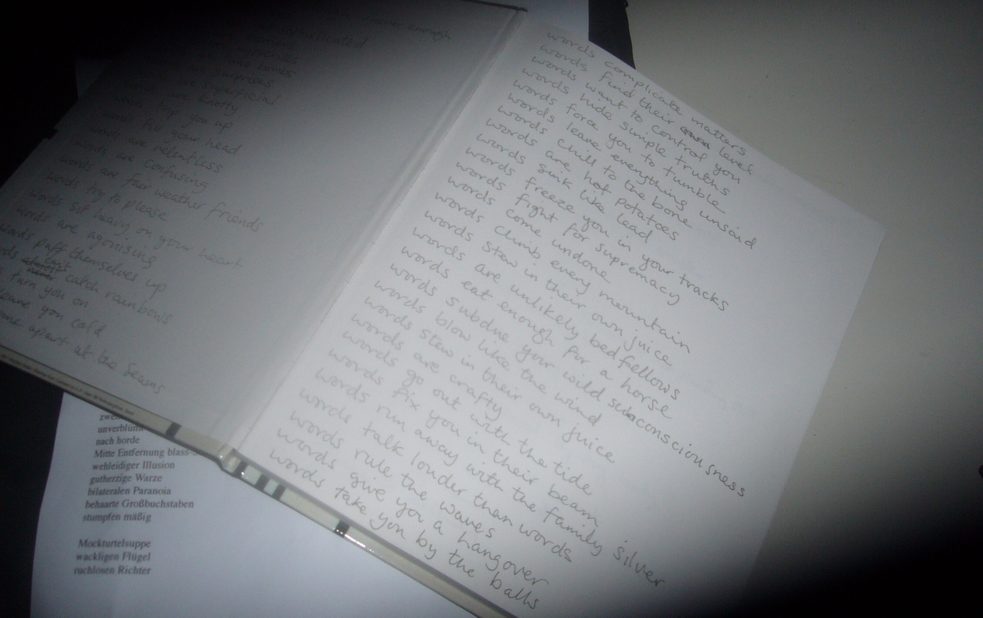 never enough
superficial
are knotty
words trip you up
words fill your head
words are relentless
words are confusing
words are fair weather friends
words try to please
words sit heavy on your heart
words are agonising
words puff themselves up
catch rainbows
turn you on
you
apart at the seams
words complicate matters
words find their own level
words want to control you
words hide simple truths
words force you to tumble
words leave everything unsaid
words chill to the bone
words are hot potatoes
words sink like lead
words freeze you in your tracks
words fight for supremacy
words come undone
words climb every mountain
words stew in their own juice
words are unlikely bedfellows
words eat enough for a horse
words subdue your wild subconsciousness
words blow like the wind
words stew in their own juice
words are crafty
words go out with the tide
words fix you in their beam
words run away with the family silver
words talk louder than words
words rule the waves
words give you a hangover
words take you by the balls
unverblümt
nach horde
Mitte Entfernung blass
wehleidiger Illusion
gutherzige Warze
bilateralen Paranoia
behaarte Großbuchstaben
stumpfen mäßig
Mockturtelsuppe
wackligen Flügel
ruchlosen Richter